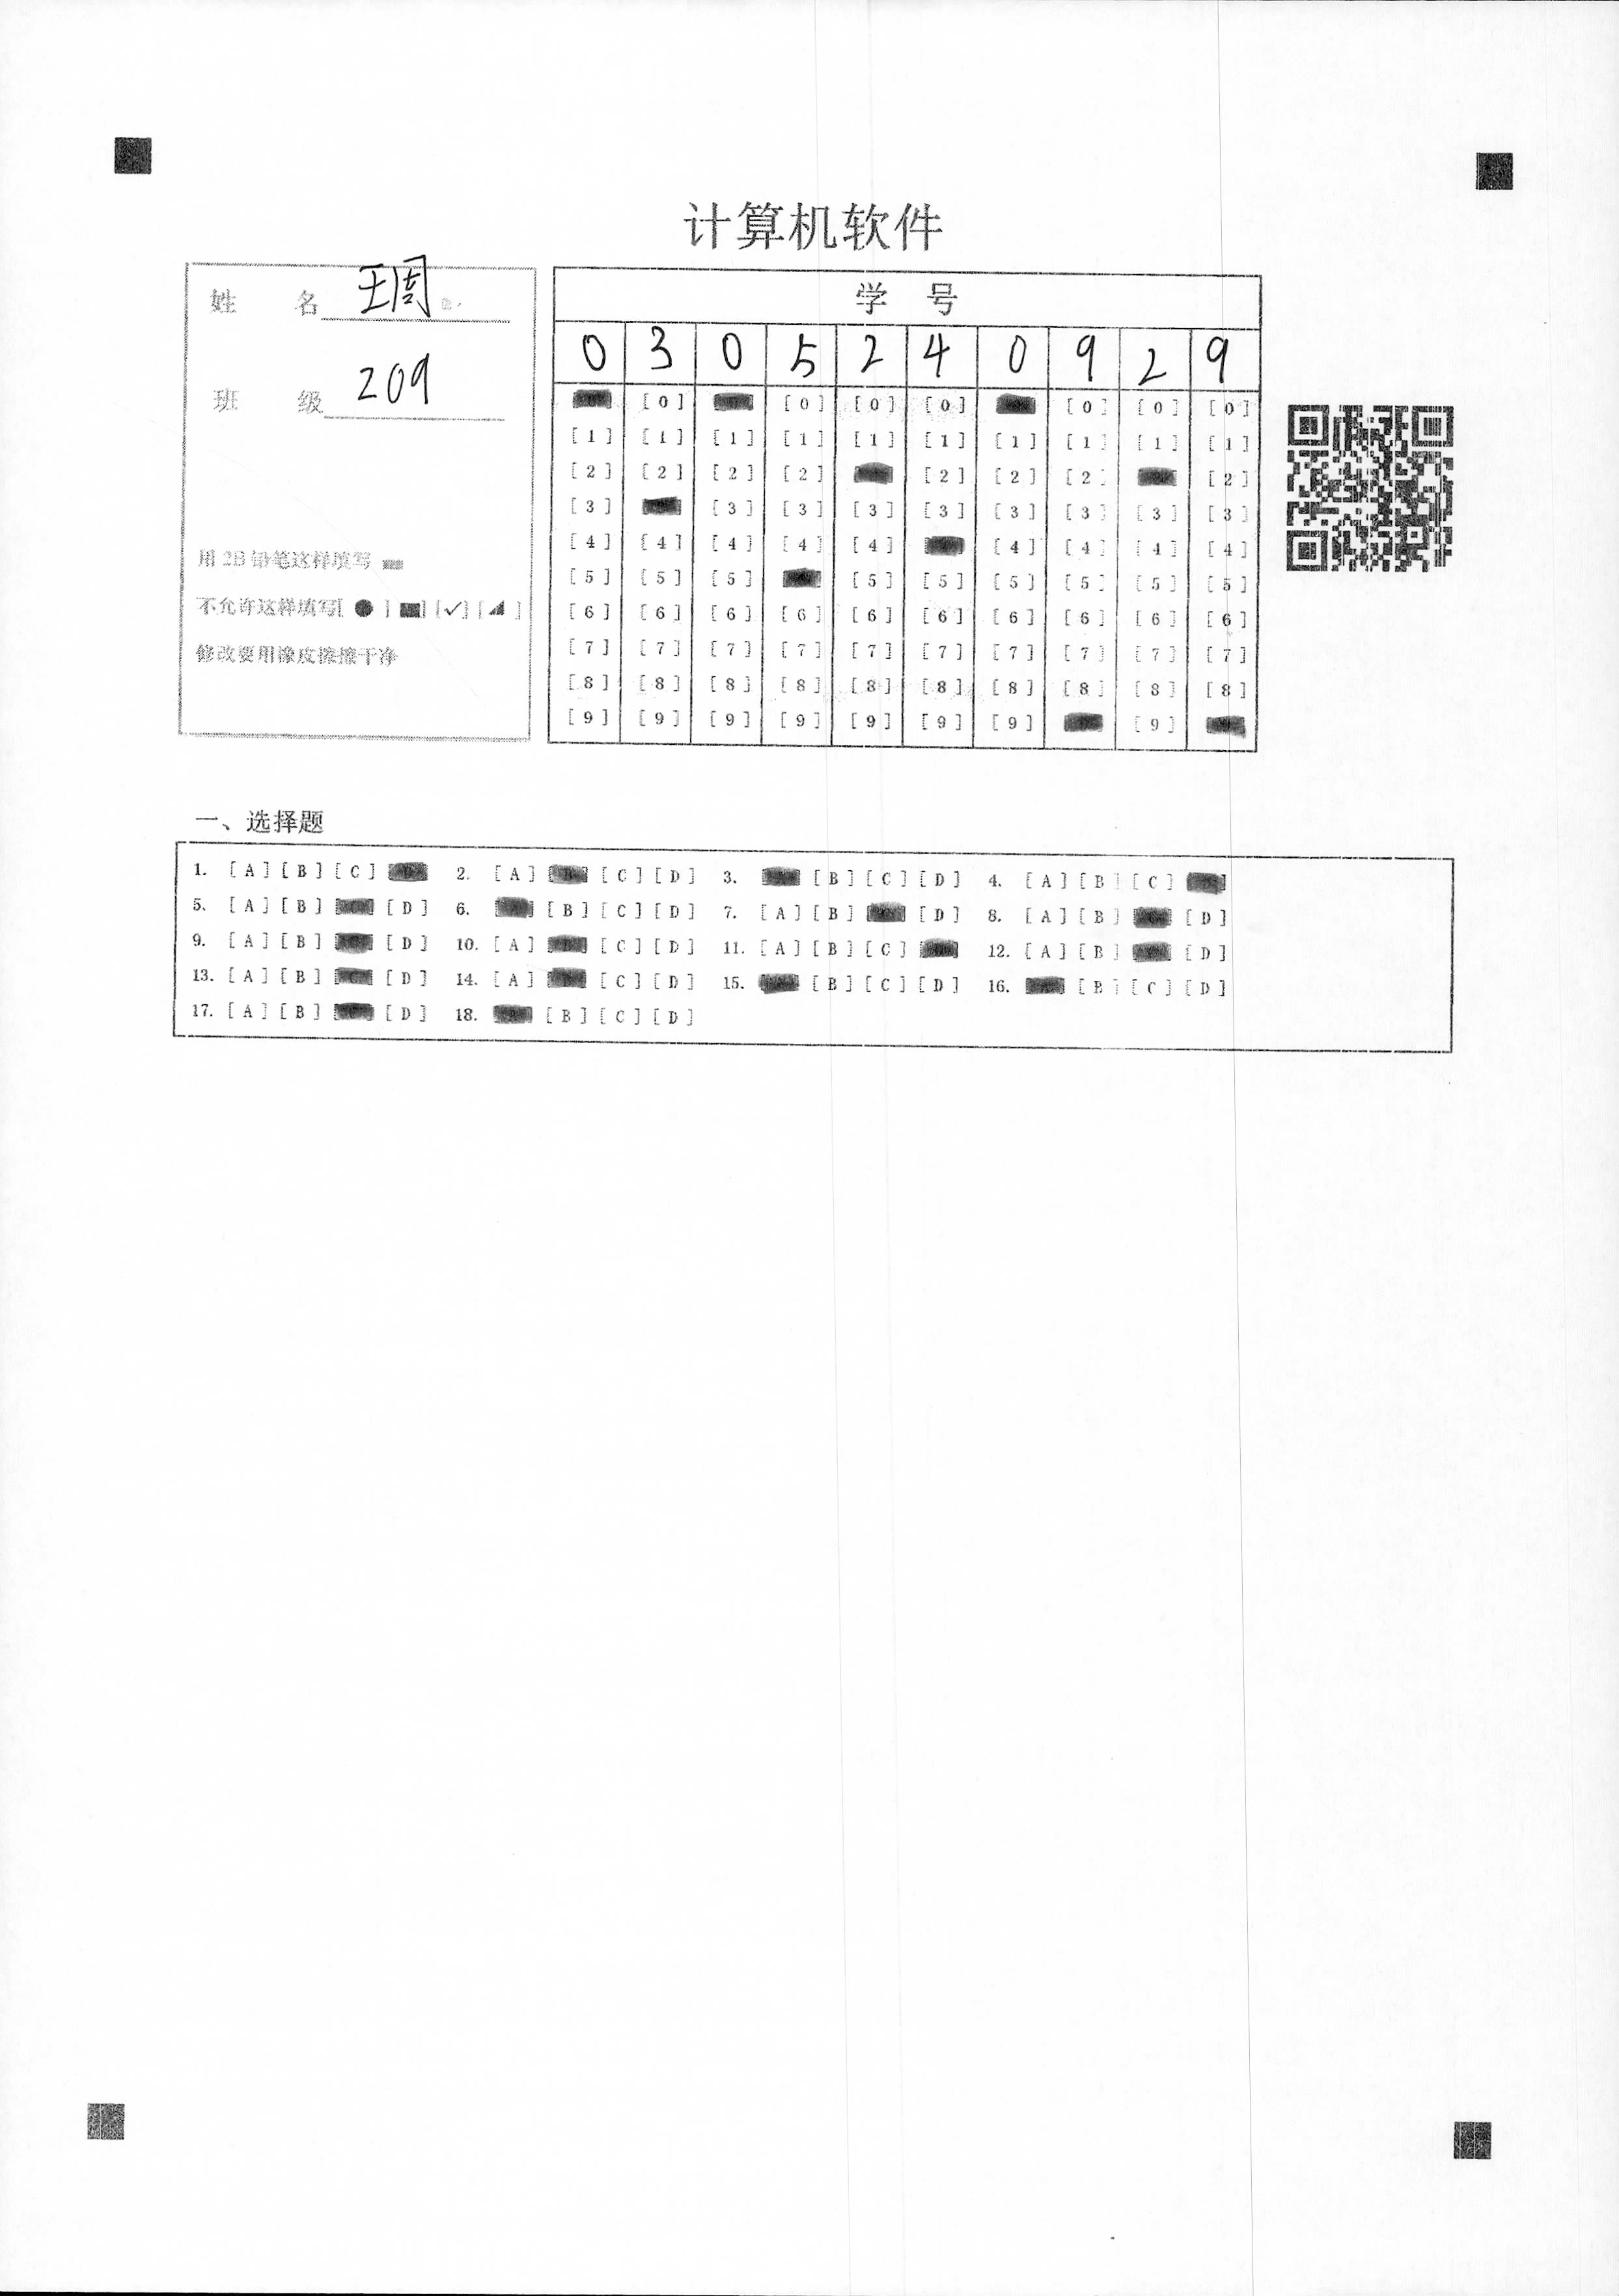 计算机软件
姓 名 王周
班 级 209
用 2B 铅笔这样填写
不允许这样填写[ ● ] [■] [✓] [◢ ]
修改要用橡皮擦擦干净
学 号
0 3 0 5 2 4 0 9 2 9
[0] [0] [0] [0] [0] [0] [0]
[1] [1] [1] [1] [1] [1] [1] [1] [1] [1]
[2] [2] [2] [2] [2] [2] [2] [2]
[3] [3] [3] [3] [3] [3] [3] [3] [3]
[4] [4] [4] [4] [4] [4] [4] [4] [4]
[5] [5] [5] [5] [5] [5] [5] [5] [5]
[6] [6] [6] [6] [6] [6] [6] [6] [6] [6]
[7] [7] [7] [7] [7] [7] [7] [7] [7] [7]
[8] [8] [8] [8] [8] [8] [8] [8] [8] [8]
[9] [9] [9] [9] [9] [9] [9] [9]
一、选择题
1. [A] [B] [C] 2. [A] [C] [D] 3. [B] [C] [D] 4. [A] [B] [C]
5. [A] [B] [D] 6. [B] [C] [D] 7. [A] [B] [D] 8. [A] [B] [D]
9. [A] [B] [D] 10. [A] [C] [D] 11. [A] [B] [C] 12. [A] [B] [D]
13. [A] [B] [D] 14. [A] [C] [D] 15. [B] [C] [D] 16. [B] [C] [D]
17. [A] [B] [D] 18. [B] [C] [D]